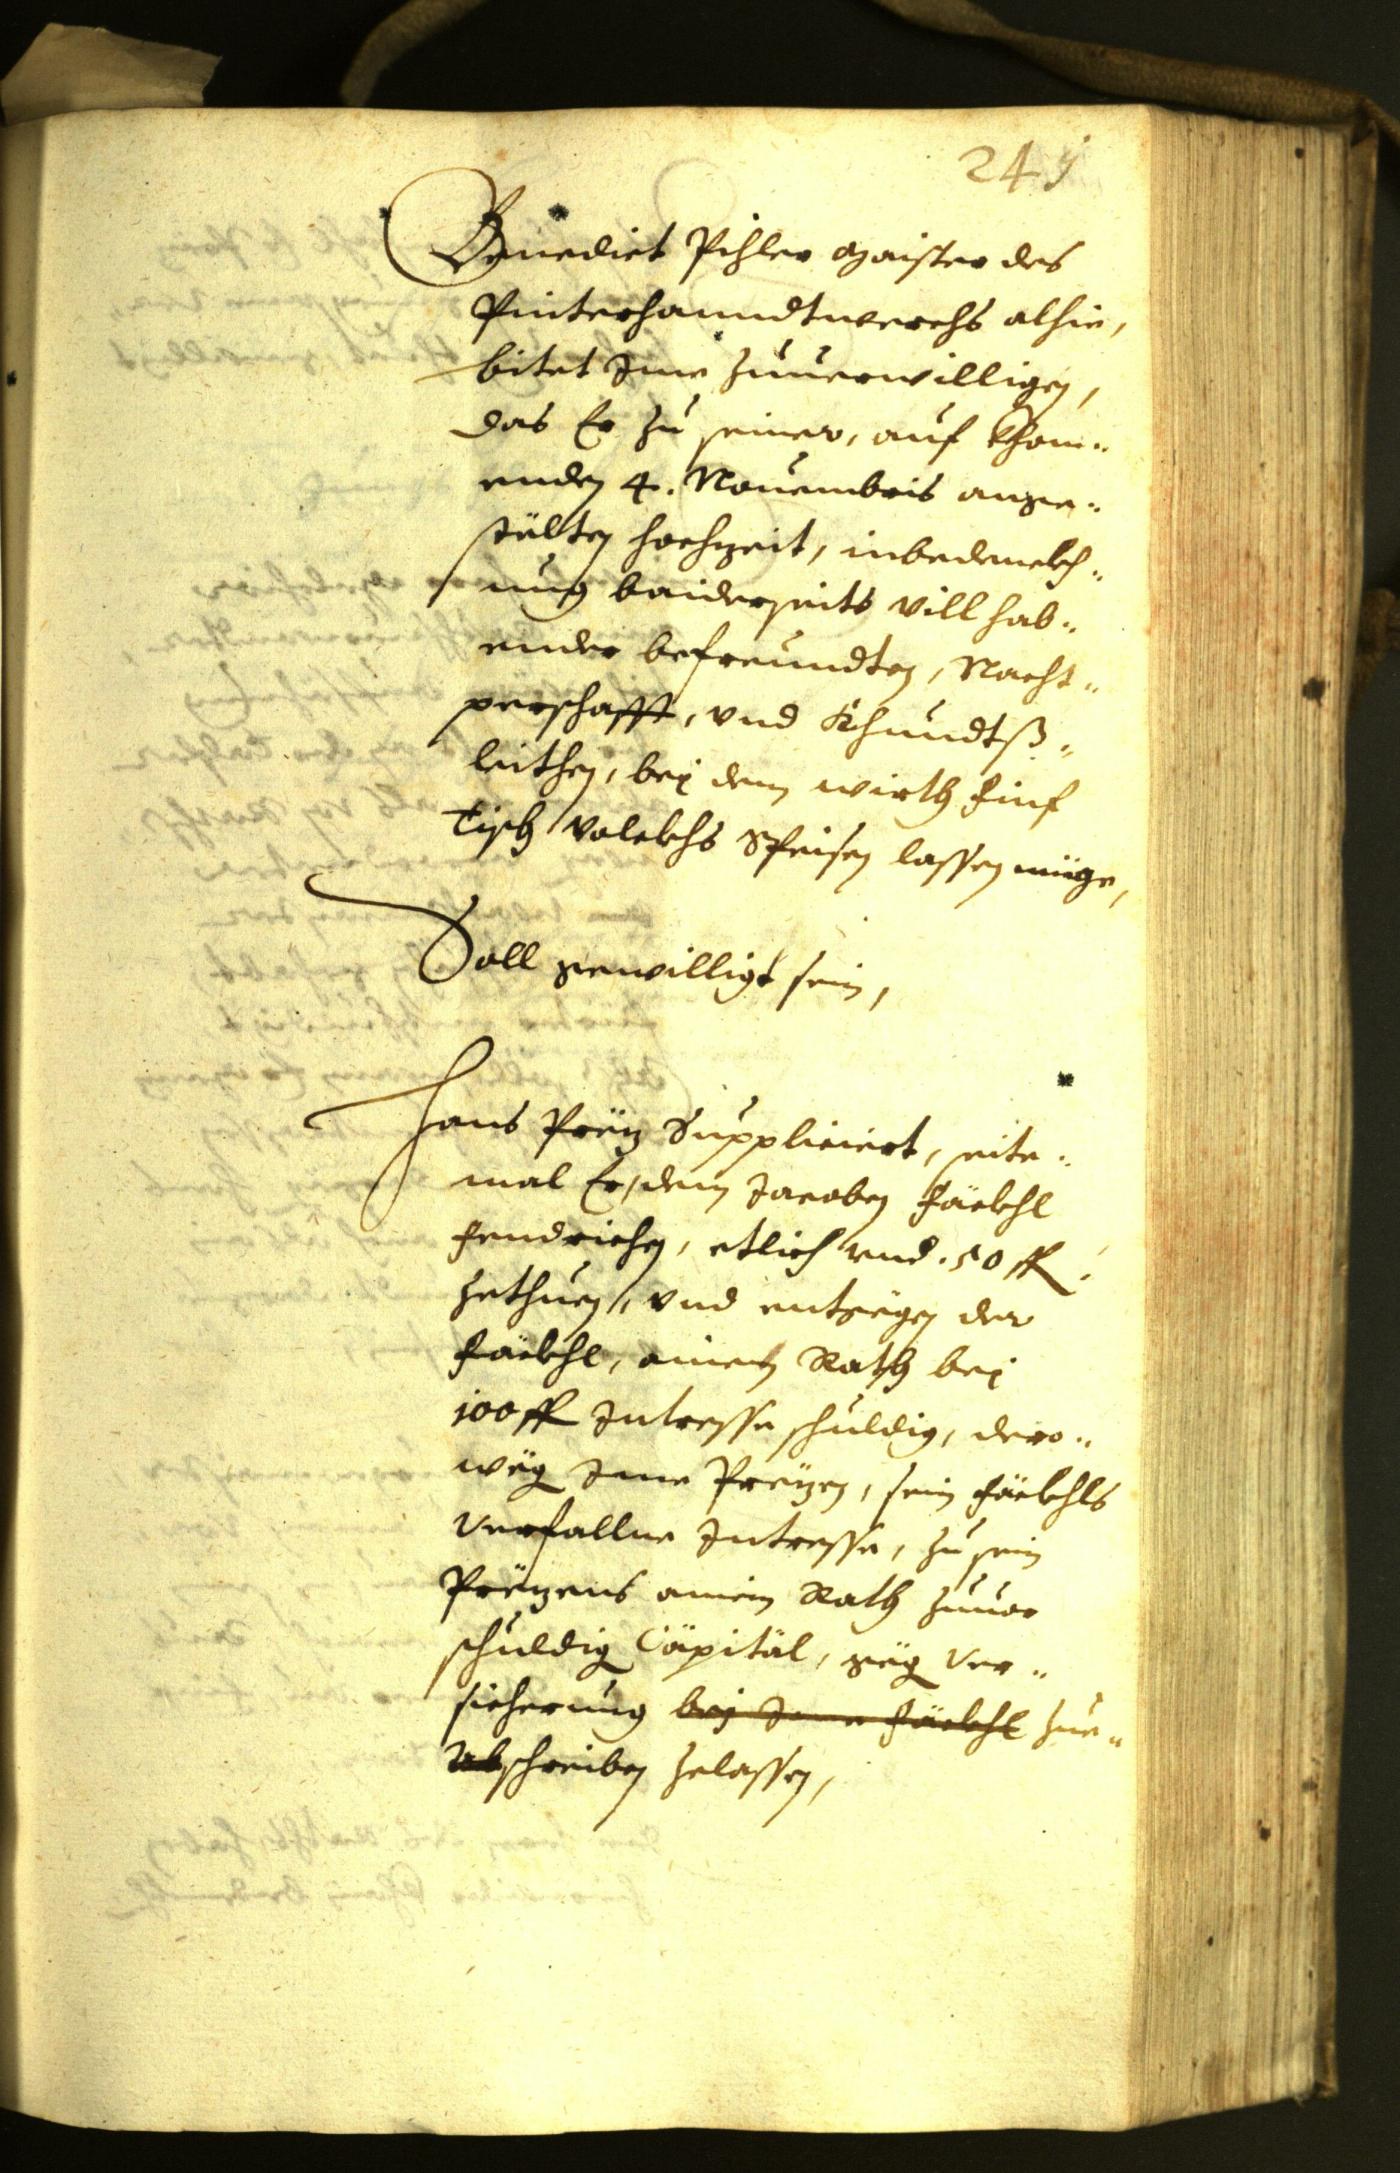 241
Benedict Pihler Maister des
Pinterhanndtwerchs alhie,
bitet Jme zuuerwilligen,
das Er zu seiner, auf khom¬
enden 4. Nouembris ange¬
stölten hochzeit, inbedenckh¬
nung baiderseits vill hab¬
ender befreundten, Nacht¬
perschafft, vnd Khundtß¬
leithen, bej dem wirth finf
Tisch volckhs Speisen lassen müge,
Soll gewilligt sein,
Hans Preÿ Suppliciert, seite¬
mal Er, dem Jacoben Fäckhl
fendrichen, etlich vnd .50 fl.
zethuen, vnd entgegen der
Fäckhl, ainem Rath bej
100 fl Intresse schuldig, dero¬
weg Jme Preÿen, sein Fäckhls
verfallne Intresse, zu sein
Preÿens ainem Rath zuuor
schuldig Capital, geg Ver¬
sicherung bej Jme Fäckhl zue¬
schreiben zelassen,